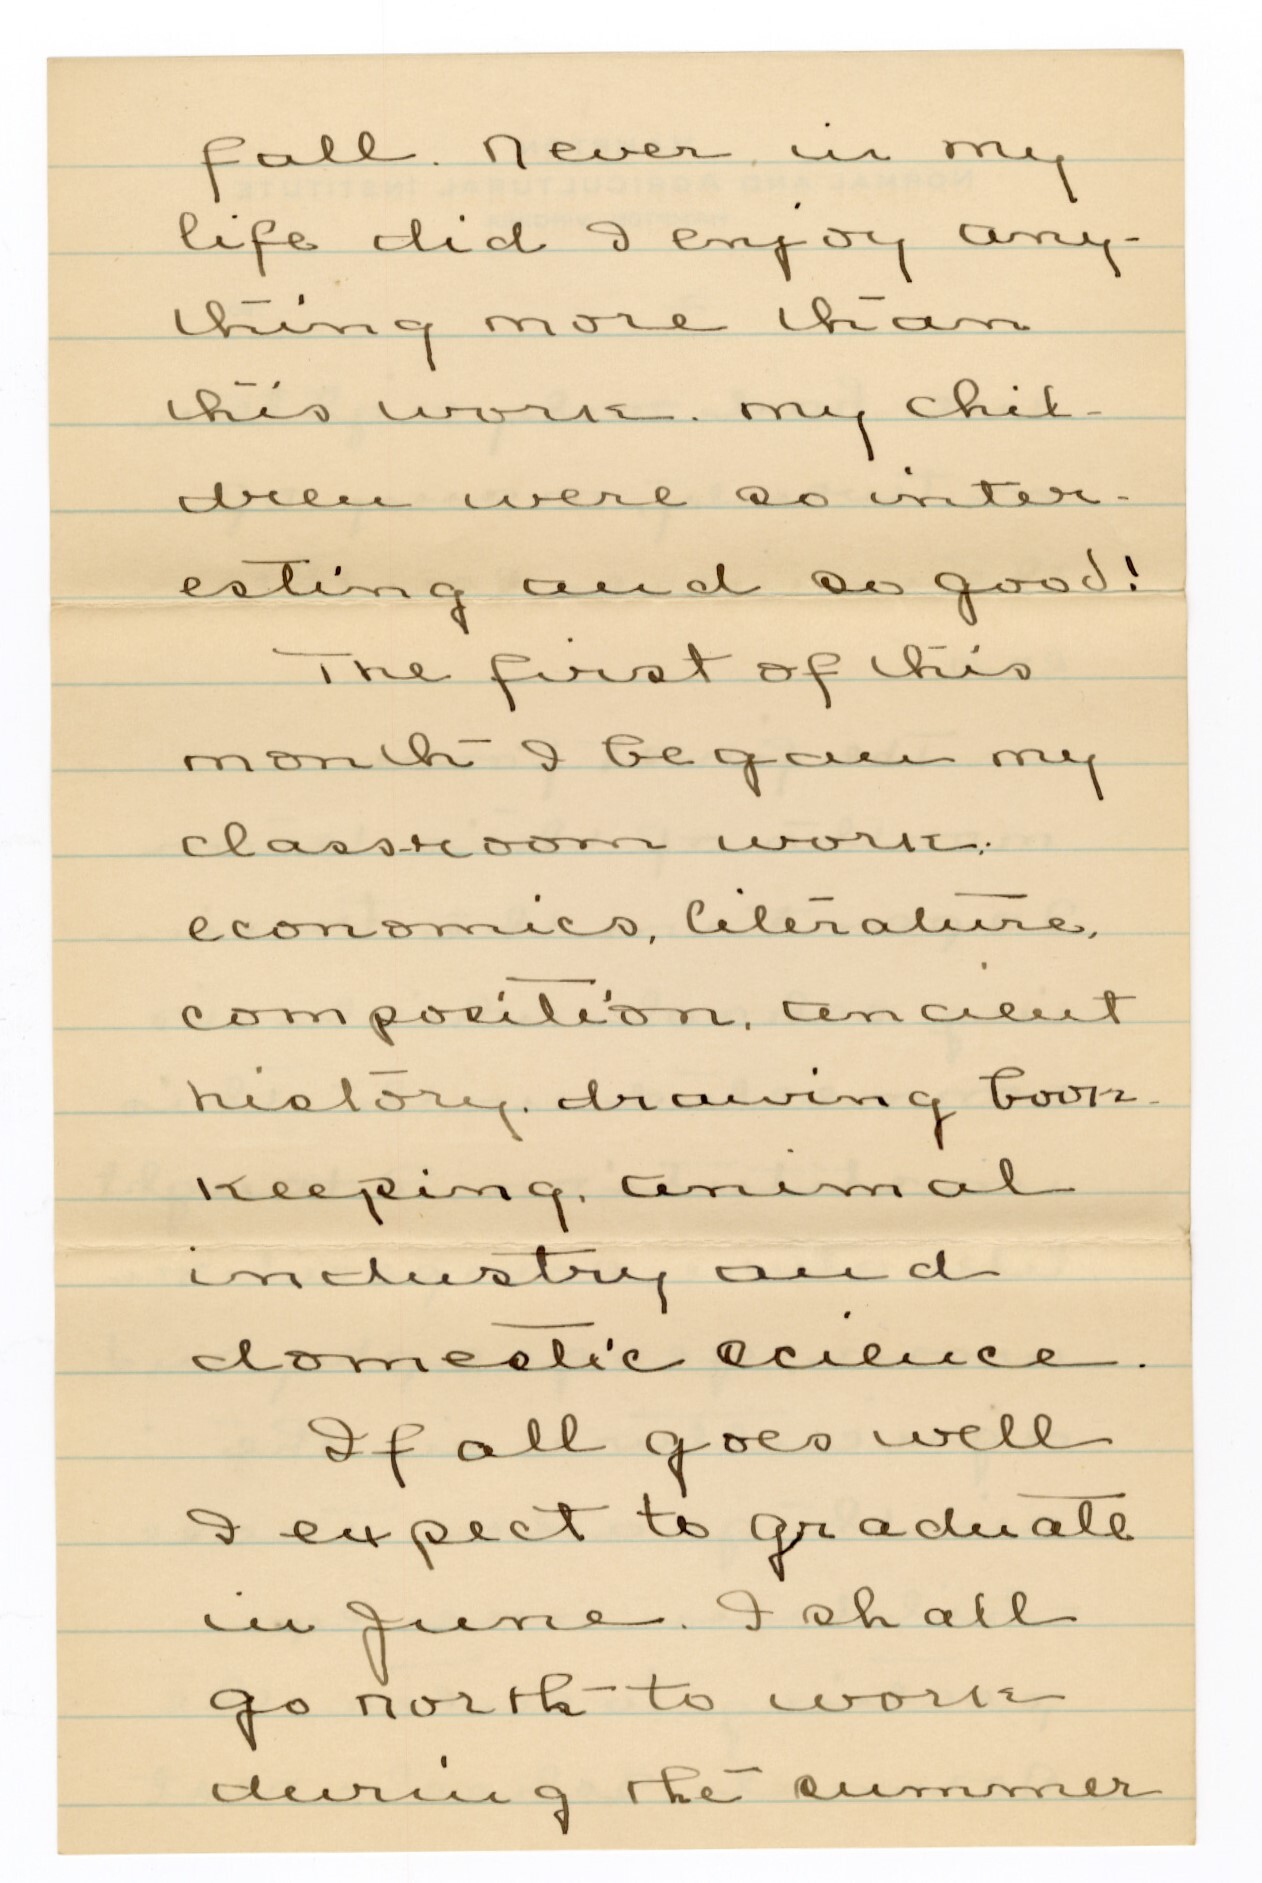 fall. Never in my
life did I enjoy any-
thing more than
this work. My chil-
dren were so inter-
esting and so good!
The first of this
month I began my
classroom work:
economics, literature,
composition, ancient
history, drawing book-
keeping, animal
industry and
domestic science.
If all goes well
I expect to graduate
in June. I shall
go north to work
during the summer